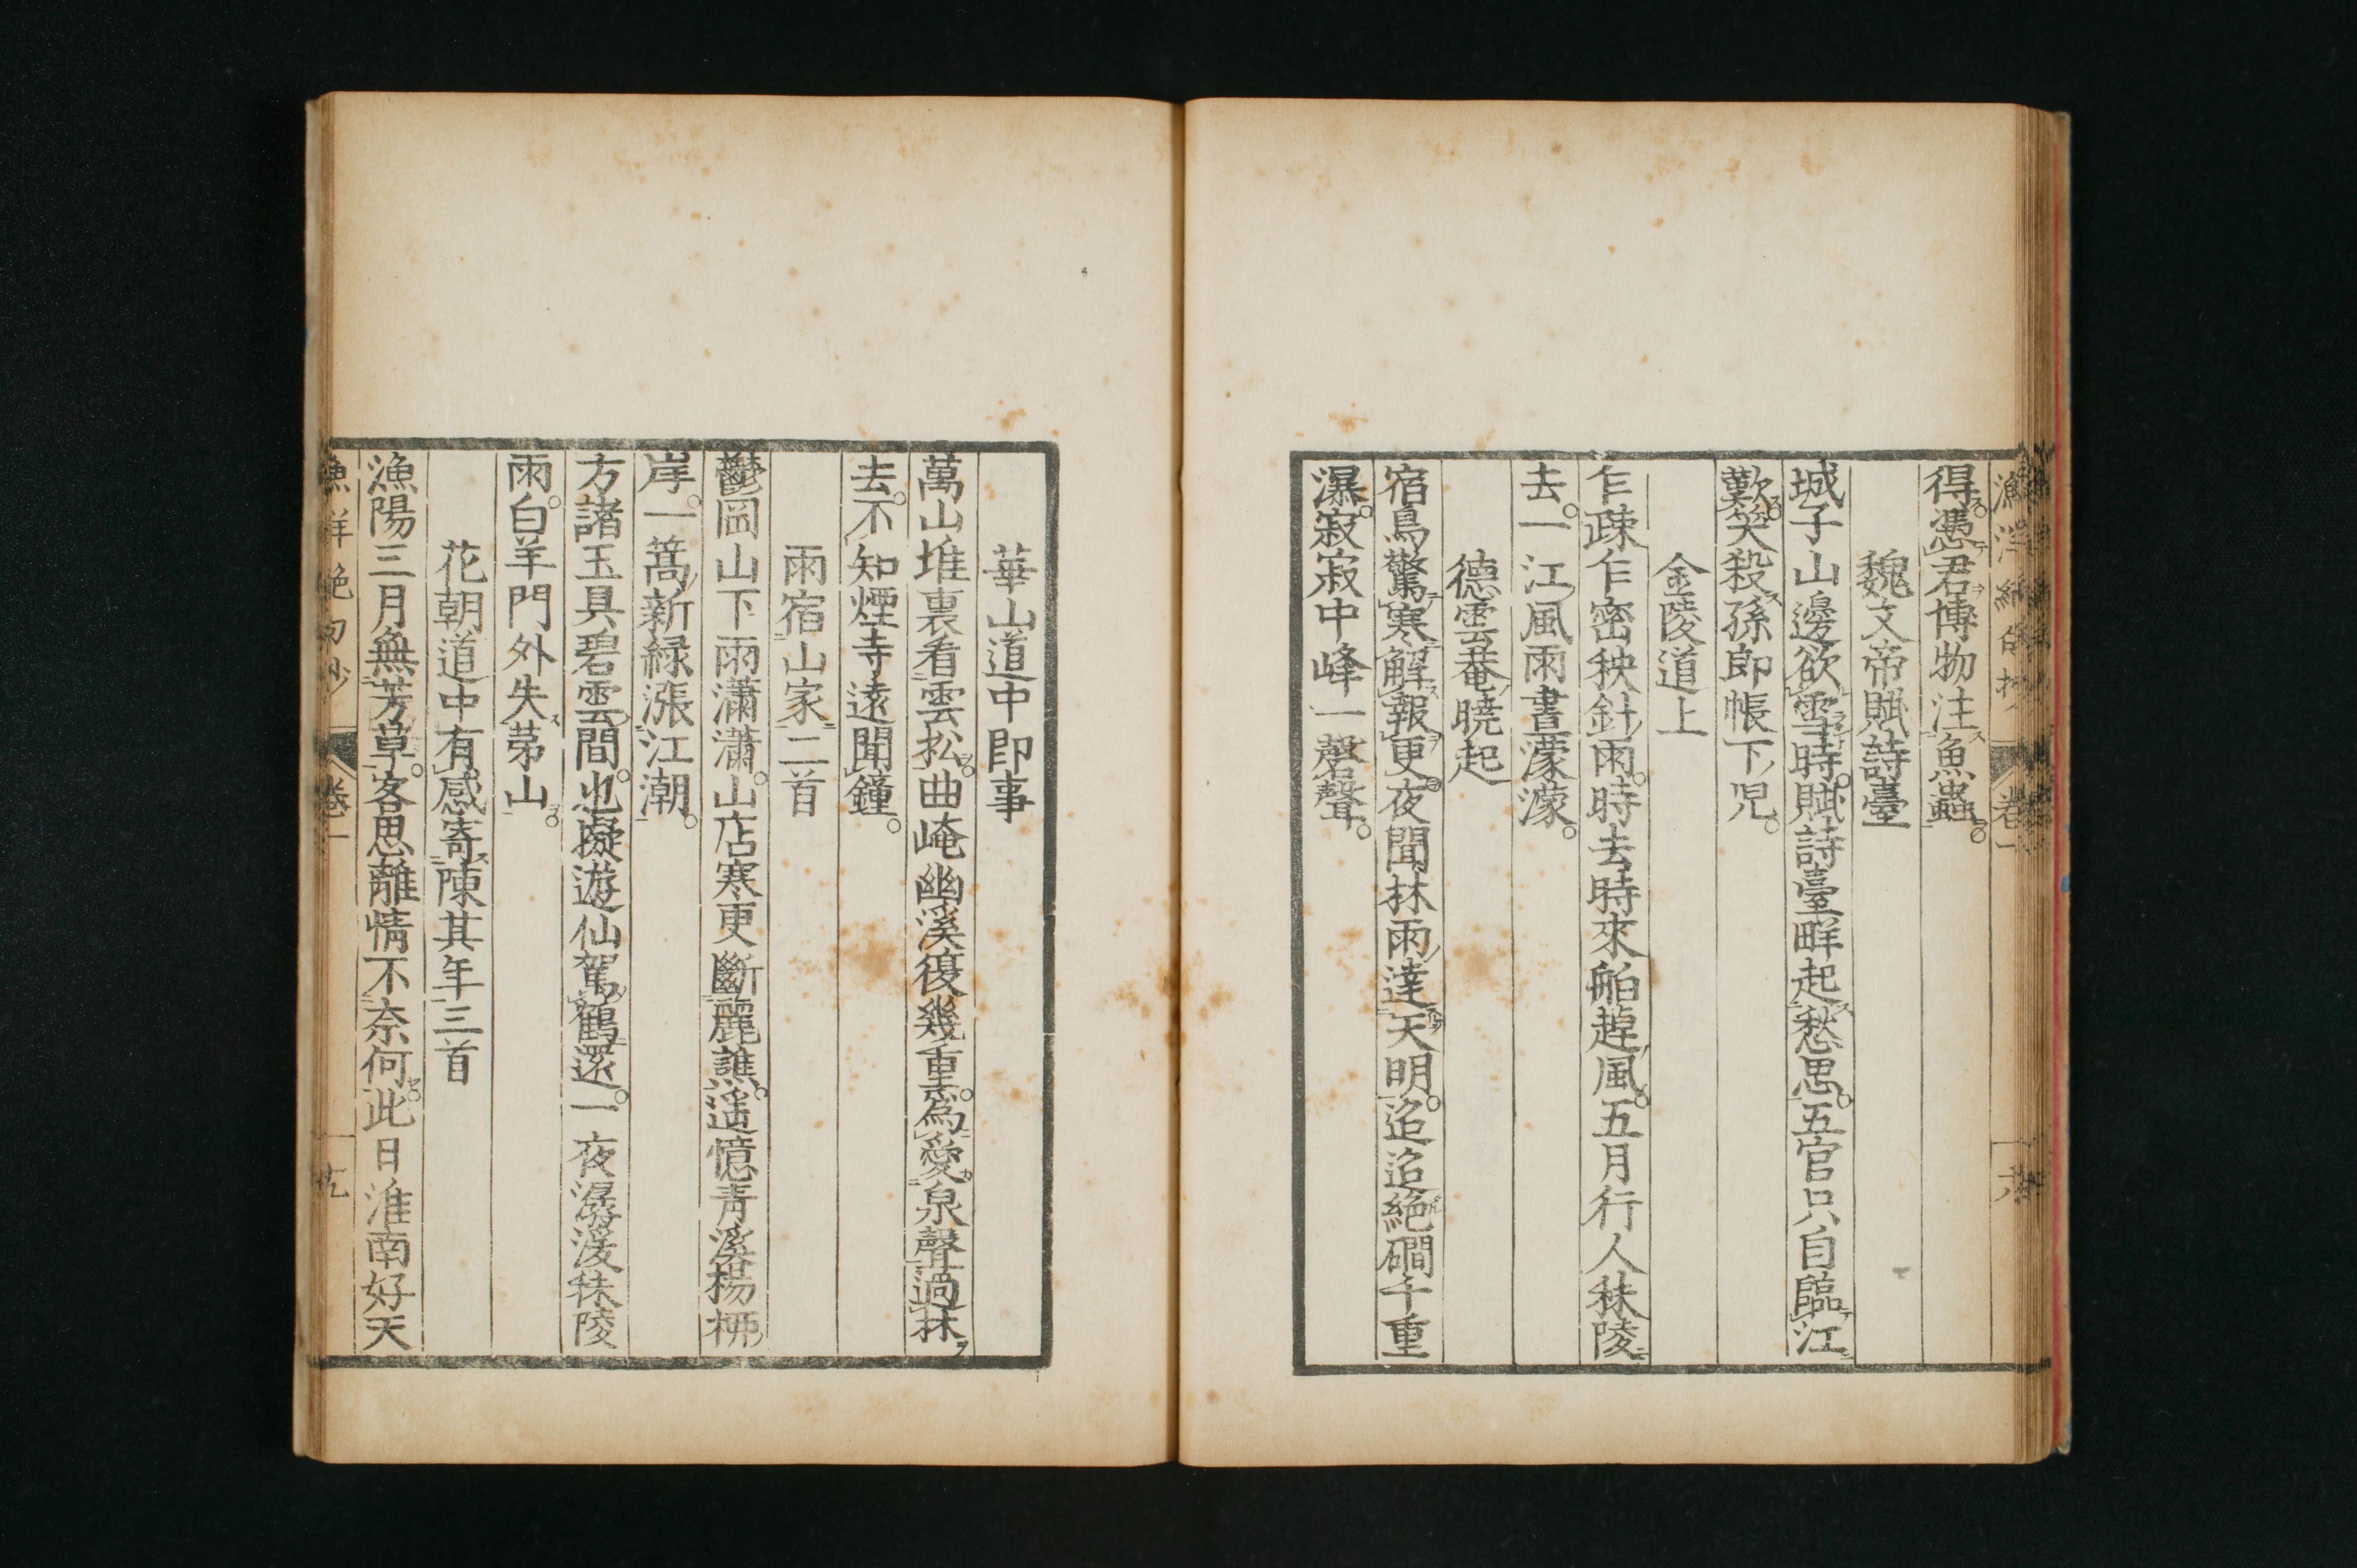 得憑君博物注魚蟲
魏文帝賦詩臺
城子山邊欲雪時賦詩臺畔起愁思五官只自臨江
歎笑殺孫郎帳下児
金陵道上
乍疎乍密秧針雨時去時來舶趠風五月行人秣陵
去一江風雨晝濛濛
德雲菴曉起
宿鳥驚寒解報更夜聞林雨達天明迢迢絕磵千重
瀑寂寂中峰一磬聲
華山道中即事
萬山堆裏看雲松曲崦幽溪復幾重為愛泉聲過林
去不知煙寺遠聞鐘
雨宿山家二首
鬱岡山下雨瀟瀟山店寒更斷麗譙遥憶青溪楊柳
岸一篙新緑漲江潮
方諸玉具碧雲間也擬遊仙駕鶴還一夜潺湲秣陵
雨白羊門外失茅山
花朝道中有感寄陳其年三首
漁陽三月無芳草客思離情不奈何此日淮南好天
漁洋絶句抄 卷一